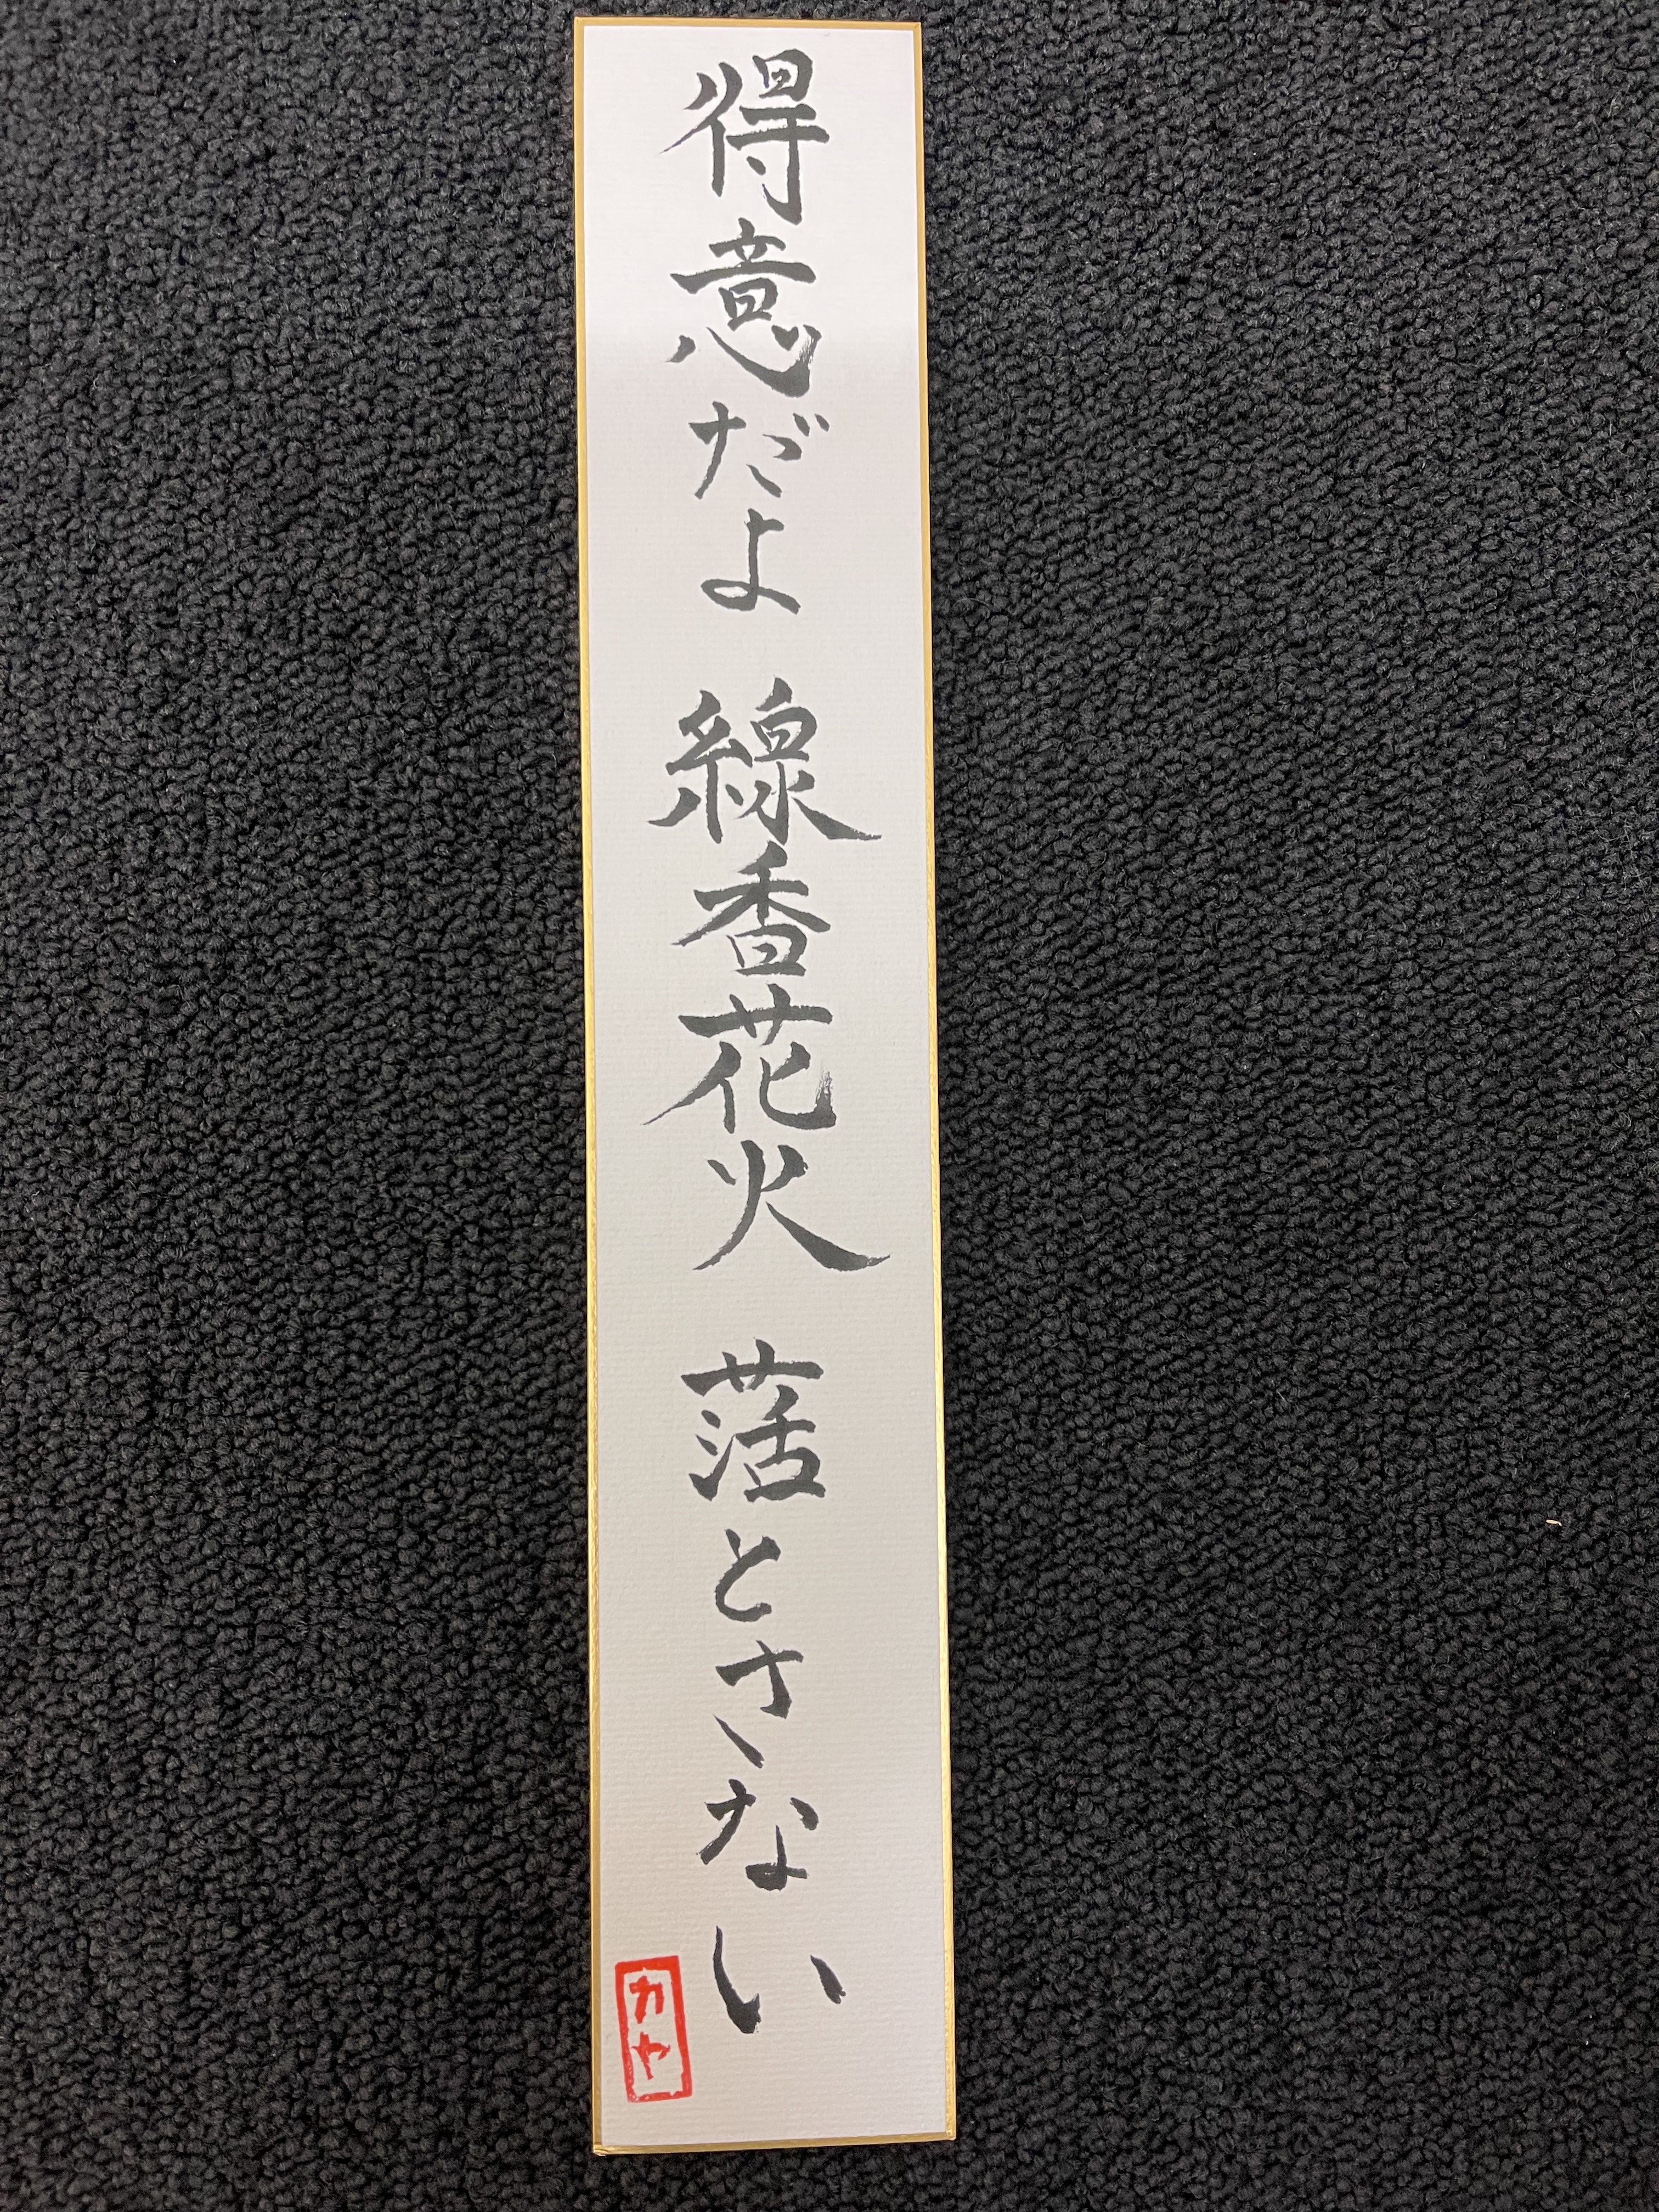 得意だよ 線香花火 落とさない
カヤ